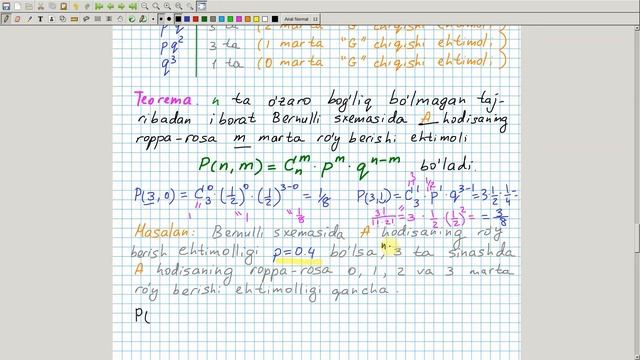 pq² 3 ta (1 marta "G" chiqishi ehtimoli)
q³ 1 ta (0 marta "G" chiqishi ehtimoli)
Teorema. n ta o'zaro bog'liq bo'lmagan taj-
ribadan iborat Bernulli sxemasida A hodisaning
roppa-rosa m marta ro'y berishi ehtimoli
P(n,m) = Cₙᵐ · pᵐ · qⁿ⁻ᵐ bo'ladi.
P(3,0) = C₃⁰ · (1/2)⁰ · (1/2)³⁻⁰ = 1/8
1 1 1/8
3 1/2
P(3,1) = C₃¹ · p¹ · q³⁻¹ = 3 · 1/2 · 1/4 =
3!/(1!·2!) = 3 · 1/2 · (1/2)² = = 3/8
Masalan: Bernulli sxemasida A hodisaning ro'y
berish ehtimolligi p=0.4 bo'lsa, 3 ta sinashda
n.
A hodisaning roppa-rosa 0, 1, 2 va 3 marta
ro'y berishi ehtimolligi qancha.
P(